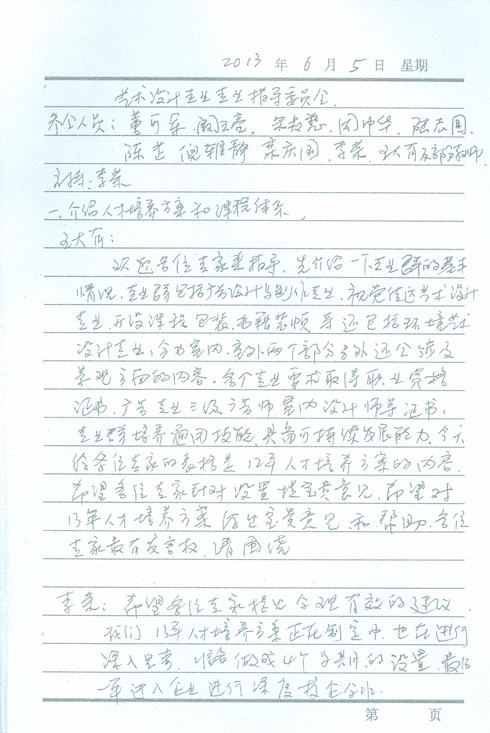 2013 年 6 月 5 日 星期
艺术设计专业专业指导委员会
参会人员：董可军 周中华 陆志国
陈芷 倪雅静 栾庆国 李荣 王大有及部分教师
主持：李荣
一、介绍人才培养方案和课程体系
王大有：
欢迎各位专家来指导，先介绍一下专业群的基本
情况，专业群包括广告设计与制作专业，视觉传达艺术设计
专业，开设课程包装、书籍装帧等还包括环境艺术
设计专业，分为室内、室外两个部分另外还会涉及
景观方面的内容，各个专业要求取得职业资格
证书，广告专业三级广告师室内设计师等证书，
专业群培养通用技能，具备可持续发展能力，今天
给各位专家的表格是12年人才培养方案的内容，
希望各位专家针对设置提宝贵意见，希望对
13年人才培养方案给出宝贵意见和帮助，各位
专家最有发言权，请围绕
李荣：希望各位专家提出合理有效的建议
我们13年人才培养方案正在制定中，也在进行
深入思考，做成4个学期的设置，最后
一年进入企业进行深度校企合作。
第 页